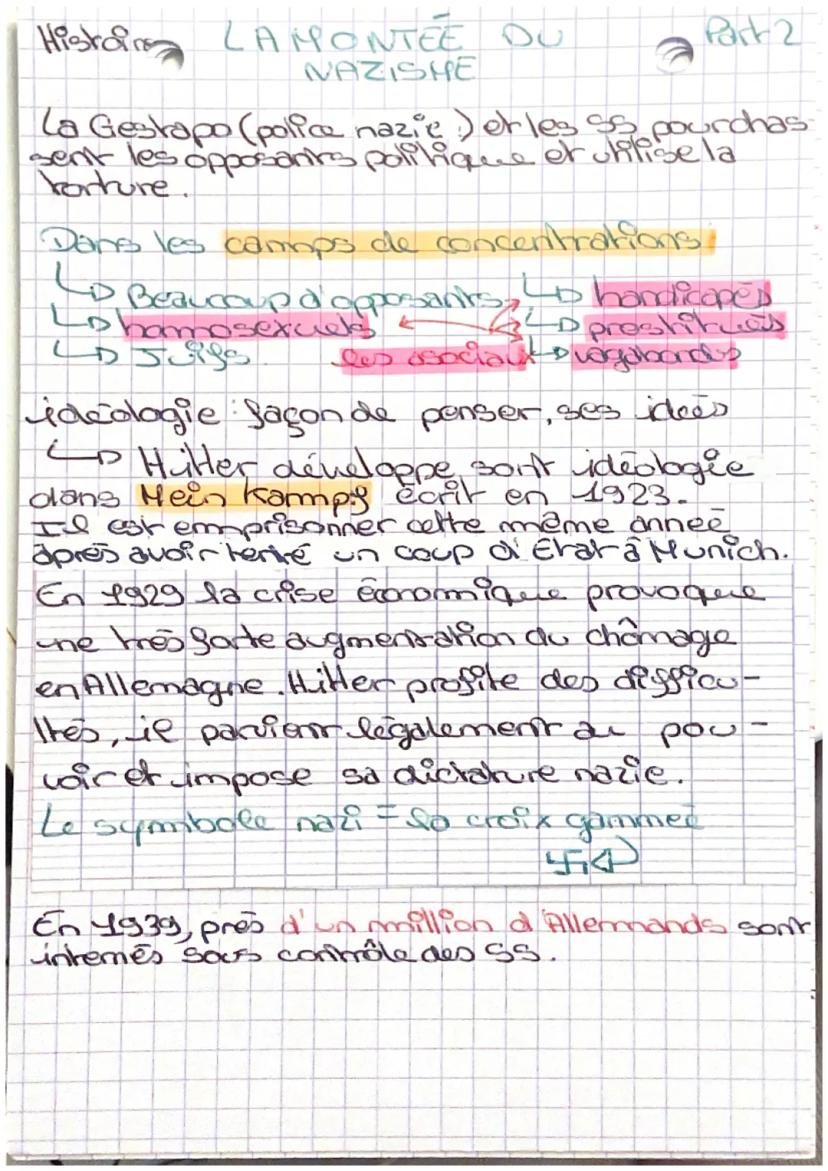 Histoire LA MONTÉE DU Part 2
NAZISME
La Gestapo (police nazie) et les SS pourchas-
sent les opposants politique et utilise la
torture.
Dans les camps de concentrations :
↳ Beaucoup d'opposants ↳ handicapés
↳ homosexuels ↳ prostitués
↳ Juifs les asociaux ↳ vagabonds
idéologie : façon de penser, ses idées
↳ Hitler développe sont idéologie
dans Mein Kampf écrit en 1923.
Il est emprisonner cette même année
après avoir tenté un coup d'État à Munich.
En 1929 la crise économique provoque
une très forte augmentation du chômage
en Allemagne. Hitler profite des difficu-
ltés, il parvient légalement au pou-
voir et impose sa dictature nazie.
Le symbole nazi = la croix gammée
En 1939, près d'un million d'Allemands sont
internés sous contrôle des SS.